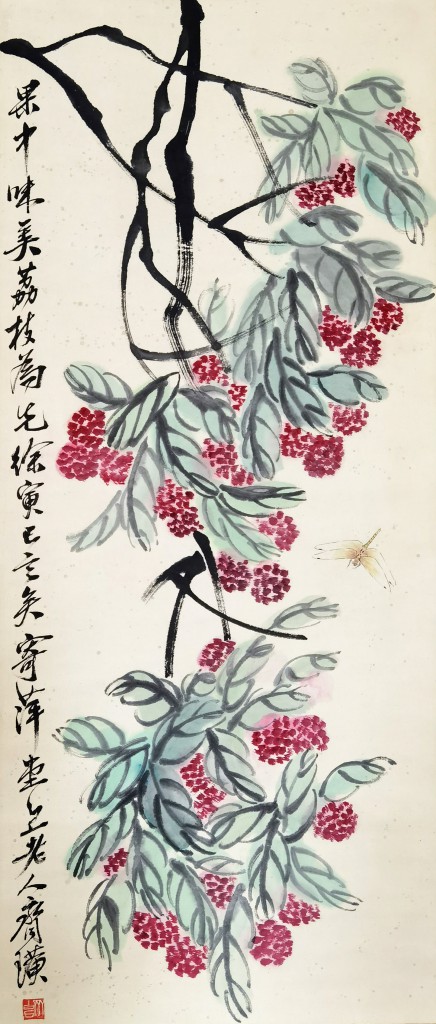 果中味美荔枝为先徐寅已言矣寄萍堂上老人齐璜